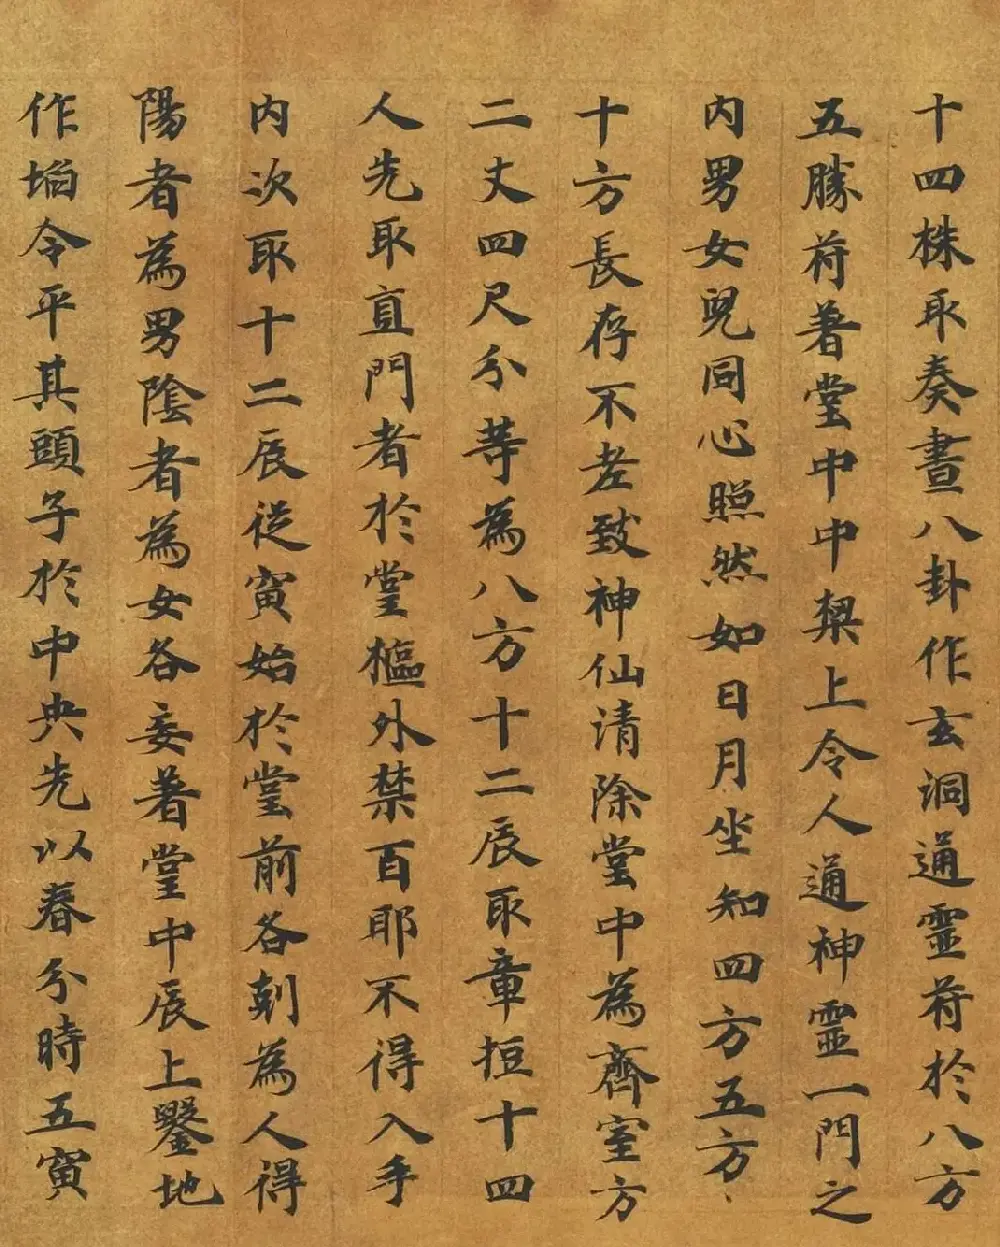 十四株取奏晝八卦作玄洞通靈符於八方
五勝符著堂中中梁上令人通神靈一門之
內男女兒同心照然如日月坐知四方五方
十方長存不老致神仙清除堂中為齊室方
二丈四尺分等為八方十二辰取章桓十四
人先取直門者於堂樞外禁百耶不得入手
內次取十二辰從寅始於堂前各刻為人得
陽者為男陰者為女各妾著堂中辰上鑿地
作埳令平其頭子於中央先以春分時五寅